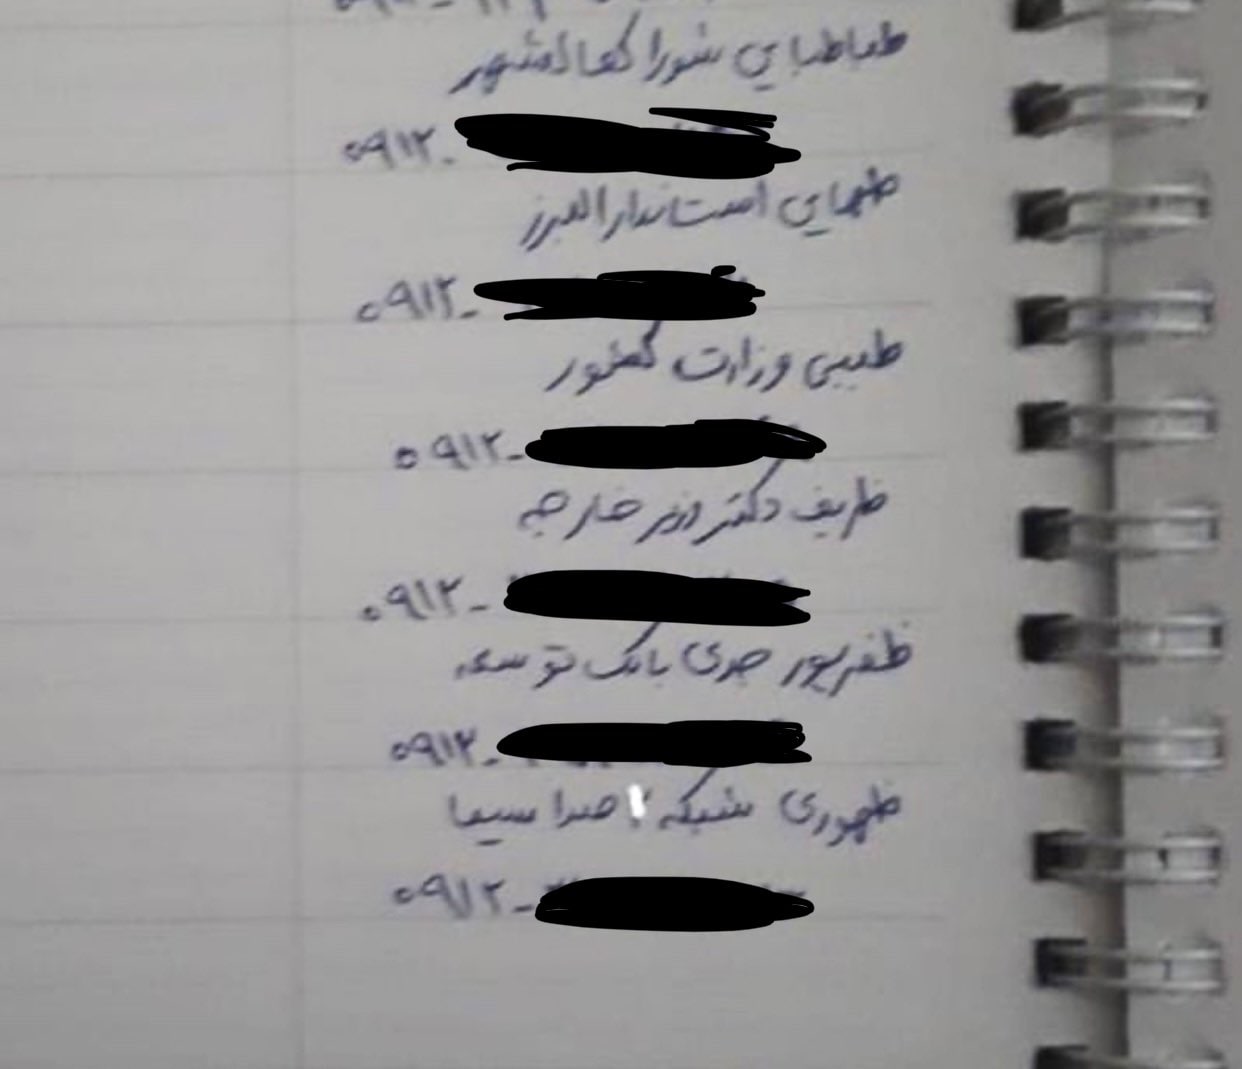 طباطبایی شورا کمالشهر
۰۹۱۲-
طهایی استاندار البرز
۰۹۱۲-
طبیبی وزارت کشور
۰۹۱۲-
ظریف دکتر وزیر خارجه
۰۹۱۲-
ظفرپور جدی بانک توسعه
۰۹۱۲-
ظهوری شبکه صدا سیما
۰۹۱۲-